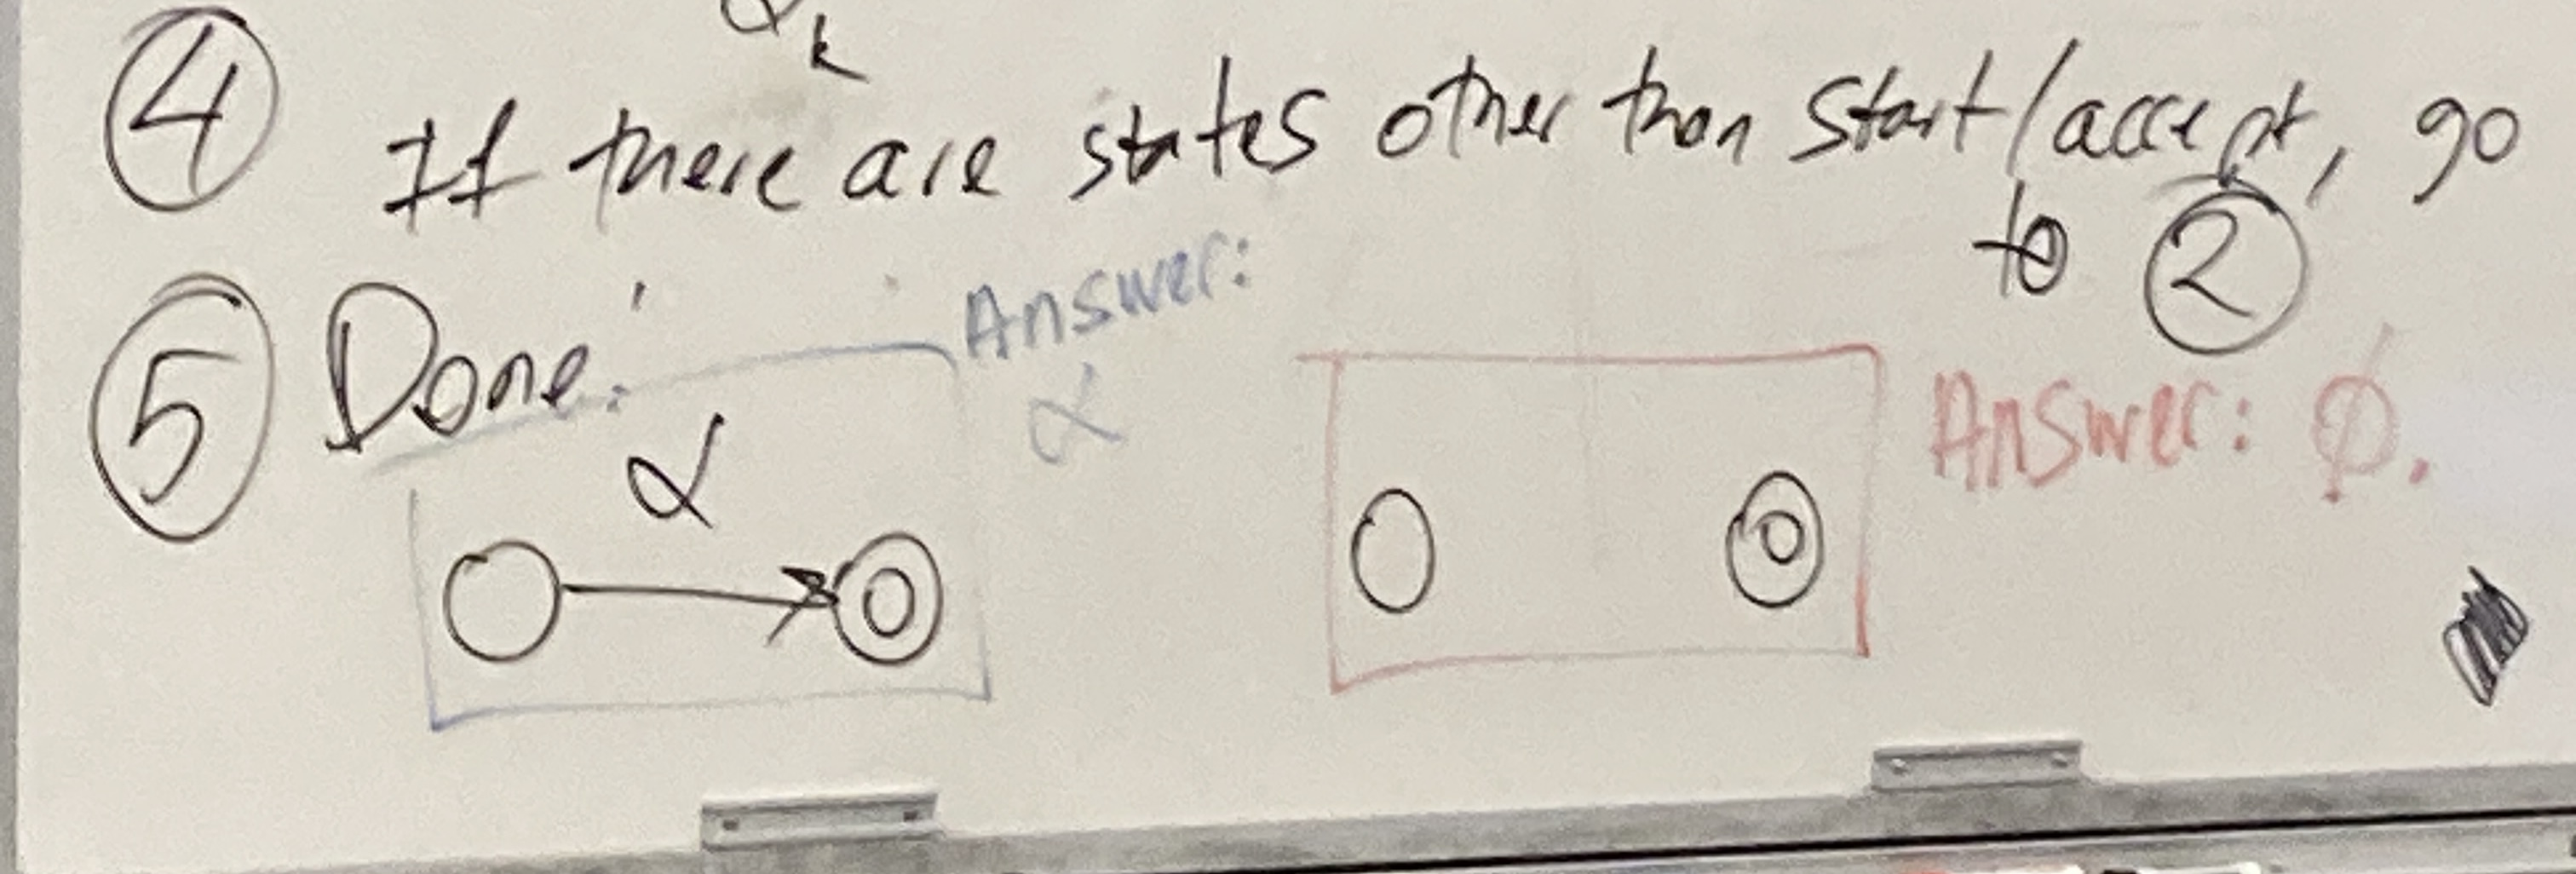 α_k
④ If there are states other than start/accept, go
to ②
⑤ Done.
Answer:
α
α
Answer: ∅.